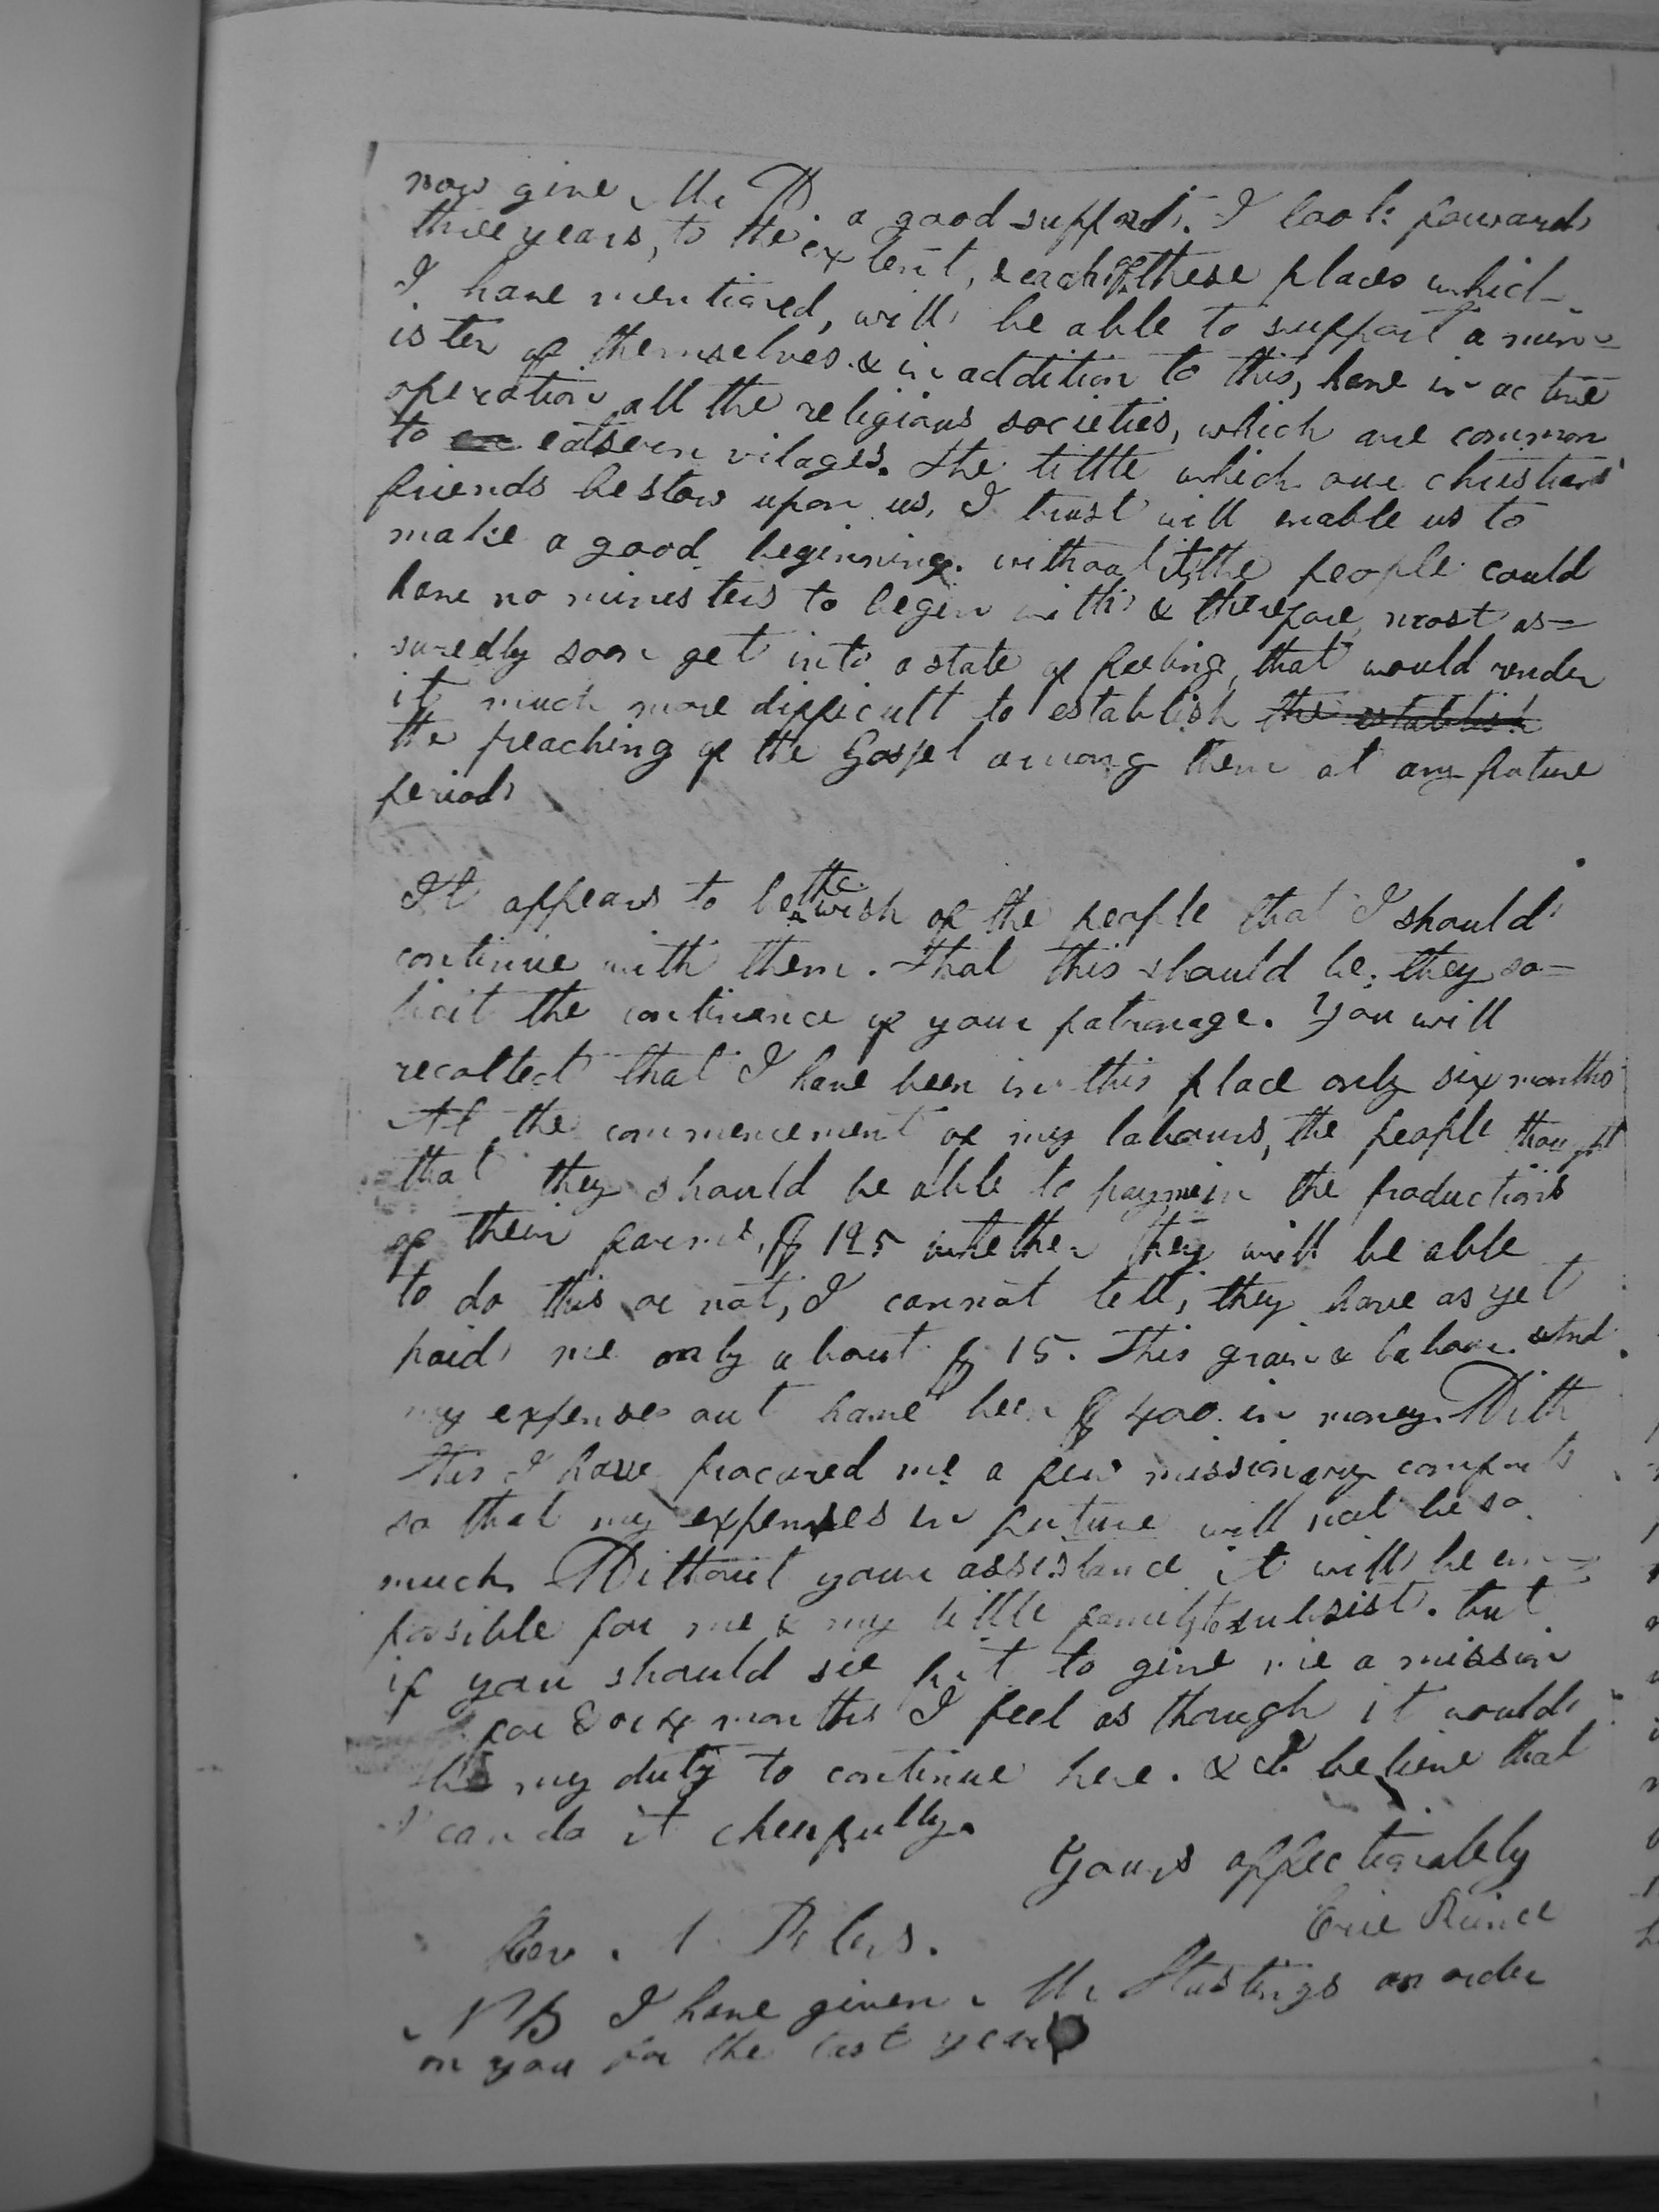 now give Mr D. a good support. I look forward
three years, to the extent, & each of these places which
I have mentioned, will be able to support a min=
ister of themselves. & in addition to this, have in active
operation all the religious societies, which are common
to eatsern vilages. The little which our christian
friends bestow upon us, I trust will enable us to
make a good beginning. without it, the people could
have no ministers to begin with & therefore, most as=
suredly soon get into a state of feeling, that would render
it much more difficult to establish the establish
the preaching of the Gospel among them at any future
period

It appears to be the wish of the people that I should
continue with them. That this should be, they so=
licit the continence of your patronage. You will
recollect that I have been in this place only six months
At the commencement of my labours, the people thought
that they should be able to pay me in the productions
of their farms, $ 125 whether they will be able
to do this or not, I cannot tell, they have as yet
paid me only about $ 15. This grain & labour. And
my expenses out have been $ 400 in money. With
this I have procured me a few missionary comforts
so that my expenses in future will not be so
much. Without your assistance it will be im=
possible for me & my little family to subsist. but
if you should see fit to give me a mission
for months I feel as though it would
be my duty to continue here. & I believe that
I can do it cheerfully.
Yours affectionately
Eric Prince
Rev. A Peters.
NB I have given Mr Hastings an order
on you for the last year